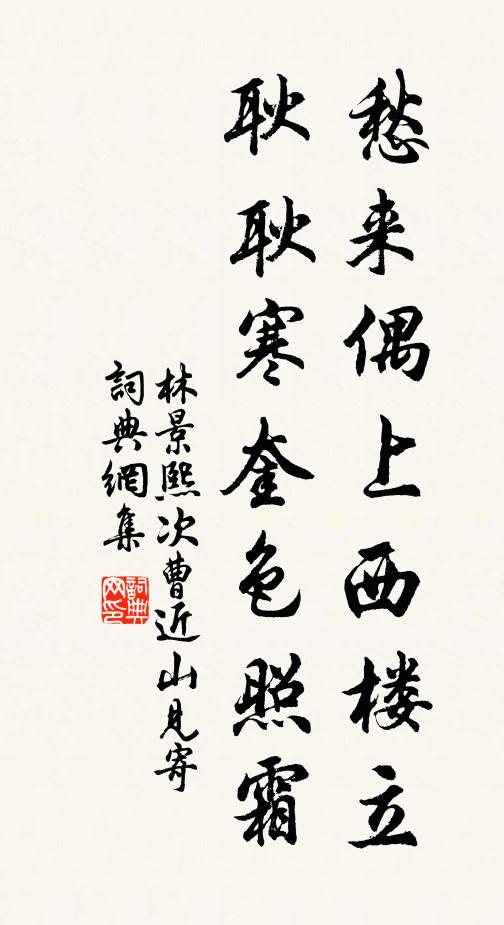 愁来偶上西楼立
耿耿寒奎色照霜
林景熙次曹近山見寄
詞典網集
詞典
网印